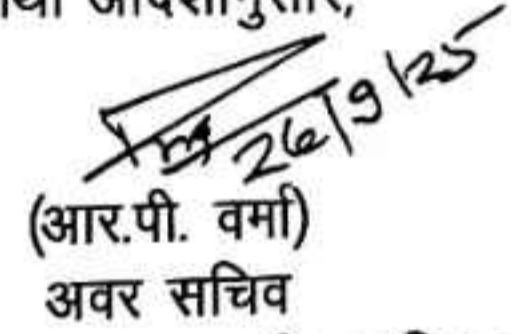 आदेशानुसार,
26/9/25
(आर.पी. वर्मा)
अवर सचिव